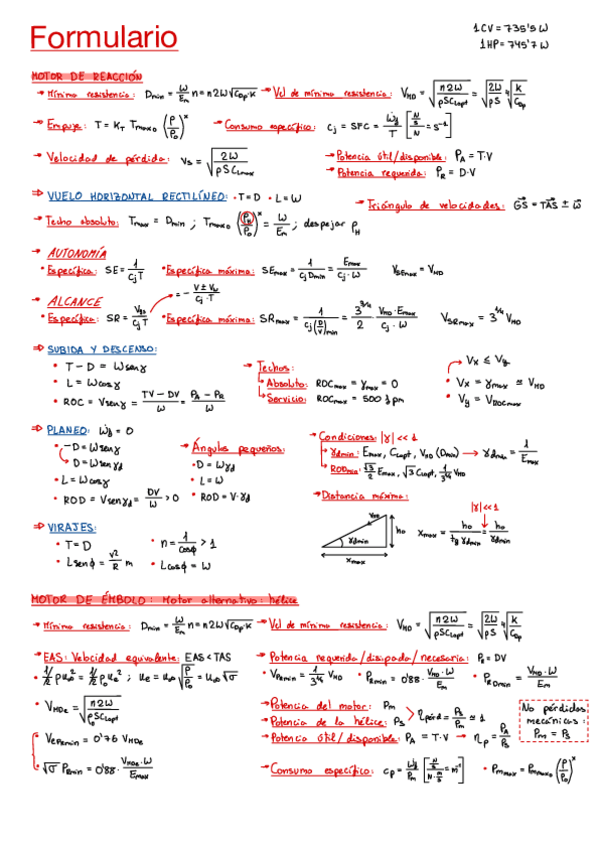 Formulario
1CV = 735'5 W
1HP = 745'7 W
MOTOR DE REACCIÓN
→ Mínima resistencia: Dmin = W/Em n = n2W√(CD0·K) → Vel de mínima resistencia: VMD = √(n2W/ρSCLopt) = √(2W/ρS) ∜(K/CD0)
→ Empuje: T = KT Tmax0 (ρ/ρ0)^x → Consumo específico: cj = SFC = ẇf/T [N/s / N = s⁻¹]
→ Velocidad de pérdida: vs = √(2W/ρSCLmax) → Potencia útil/disponible: PA = T·V
→ Potencia requerida: PR = D·V
⇒ VUELO HORIZONTAL RECTILÍNEO: • T=D • L=W → Triángulo de velocidades: GS = TAS ± W
→ Techo absoluto: Tmax = Dmin ; Tmax0 (ρH/ρ0)^x = W/Em ; despejar ρH
→ AUTONOMÍA
• Específica: SE = 1/cjT • Específica máxima: SEmax = 1/cjDmin = Emax/cj·W VSEmax = VMD
= - V ± Vw/cj·T
→ ALCANCE
• Específico: SR = Vgs/cjT • Específica máxima: SRmax = 1/cj(D/V)min = 3^(3/4)/2 · VMD·Emax/cj·W VSRmax = 3^(1/4) VMD
⇒ SUBIDA Y DESCENSO:
• T - D = W sen γ
• L = W cos γ
• ROC = V sen γ = TV - DV/W = PA - PR/W
→ Techos:
Absoluto: ROCmax = γmax = 0
Servicio: ROCmax = 500 fpm
Vx ≤ Vy
• Vx = γmax ≃ VMD
• Vy = VROCmax
⇒ PLANEO: ẇf = 0
• -D = W sen γ
D = W sen γd
• L = W cos γ
• ROD = V sen γd = DV/W > 0
→ Ángulos pequeños:
• D = Wγd
• L = W
• ROD = V·γd
→ Condiciones: |γ| << 1
γdmin: Emax, CLopt, VMD (Dmin) → γdmin = 1/Emax
RODmin: √3/2 Emax, √3 CLopt, 1/3^(1/4) VMD
→ Distancia máxima:
VMD
γdmin
h0
xmax
|γ|<<1
xmax = h0/tg γdmin = h0/γdmin
⇒ VIRAJES:
• T = D • n = 1/cosϕ > 1
• L sen ϕ = v²/R m • L cos ϕ = W
MOTOR DE ÉMBOLO: Motor alternativo: hélice
→ Mínima resistencia: Dmin = W/Em n = n2W√(CD0·K) → Vel de mínima resistencia: VMD = √(n2W/ρSCLopt) = √(2W/ρS) ∜(K/CD0)
→ EAS: Velocidad equivalente: EAS < TAS
• 1/2 ρu∞² = 1/2 ρ0 ue² ; ue = u∞ √(ρ/ρ0) = u∞ √σ
• VMDe = √(n2W/ρ0SCLopt)
VePRmin = 0'76 VMDe
• √σ PRmin = 0'88 · VMDe·W/Emax
→ Potencia requerida/disipada/necesaria: PR = DV
• VPRmin = 1/3^(1/4) VMD • PRmin = 0'88 · VMD·W/Em • PRDmin = VMD·W/Em
→ Potencia del motor: Pm
→ Potencia de la hélice: PB
ηpérd = PB/Pm ≃ 1
→ Potencia útil/disponible: PA = T·V → ηp = PA/PB
No pérdidas
mecánicas:
Pm = PB
→ Consumo específico: cp = ẇf/Pm [N/s / N·m/s = m⁻¹] • Pmmax = Pmmax0 (ρ/ρ0)^x